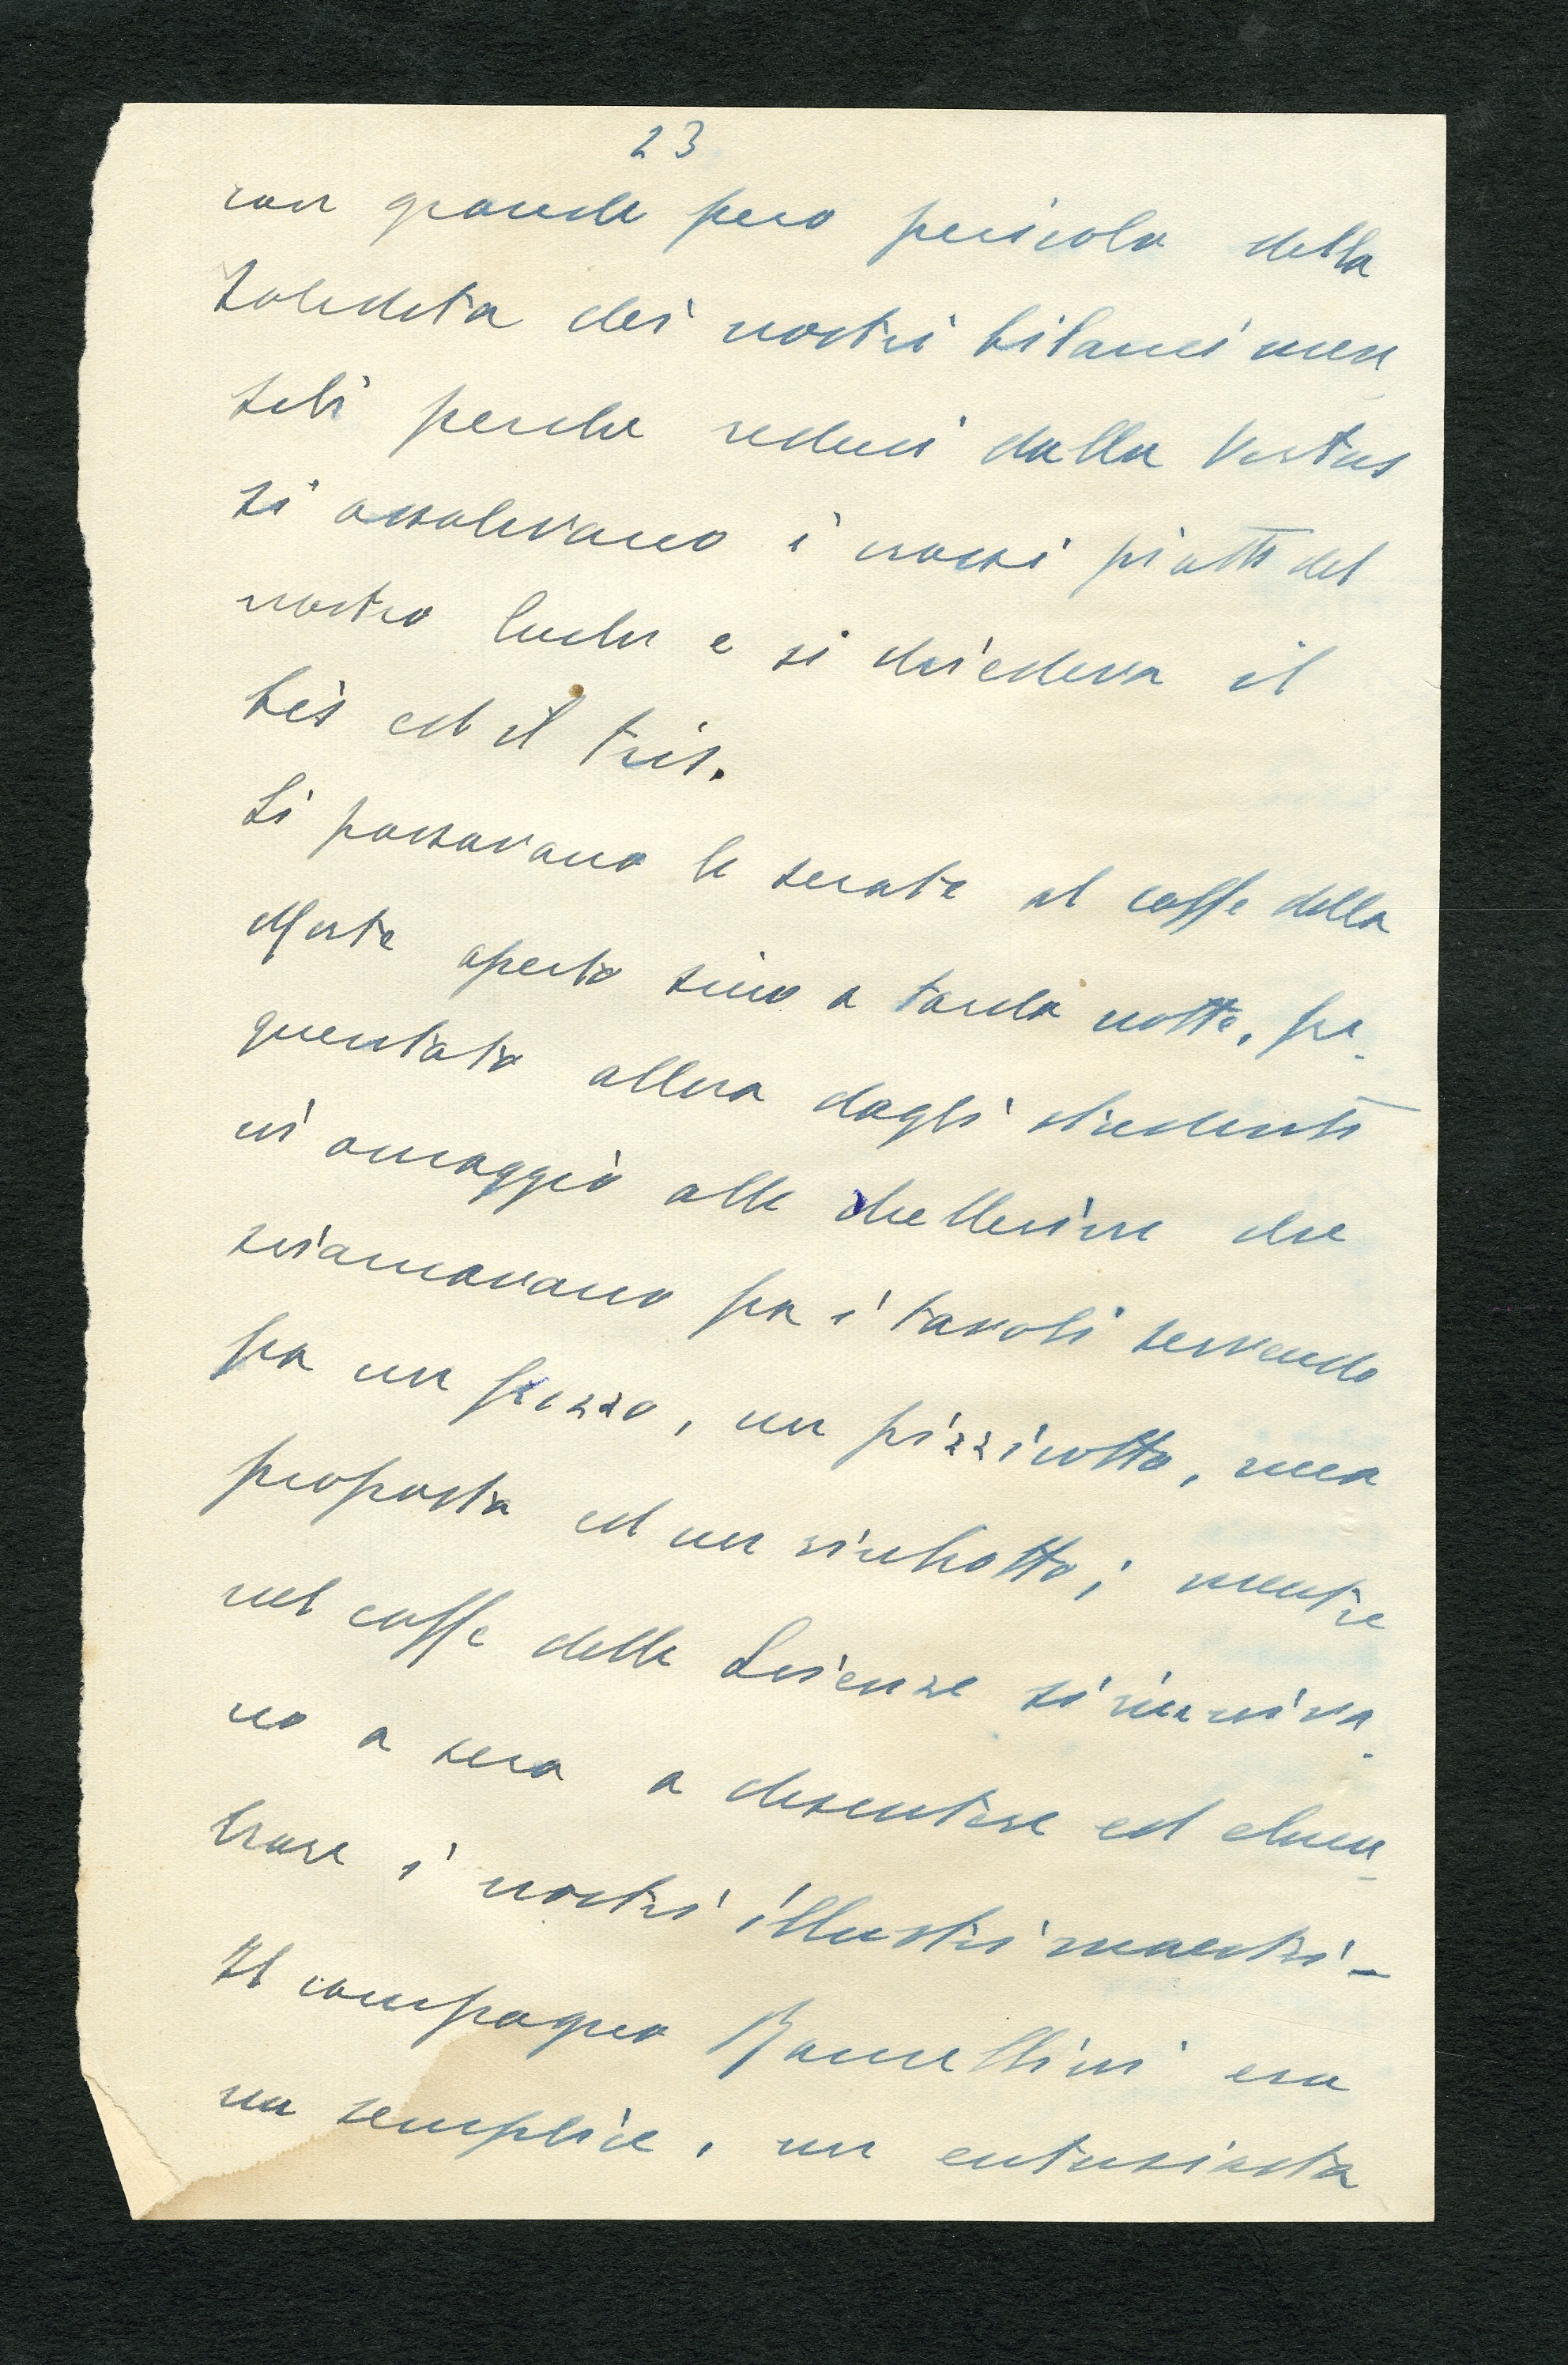 23
con grande pero pericolo della
solidita dei nostri bilanci men
sili perche reduci dalla Virtus
si assalivano i grossi piatti del
nostro e si chiedeva il
bis ed il tris.
Si passavano le serate al caffe della
Morte aperto sino a tarda notte, fre-
quentato allora dagli studenti
in omaggio alle chellerine che
sciamavano fra i tavoli servendo
fra un frizzo, un pizzicotto, una
proposta ed un cicchotto; mentre
nel caffe delle Scienze si riuniva-
no a sera a discutere ed elucu-
brare i nostri illustri maestri-
Il compagno era
un semplice, un entusiasta